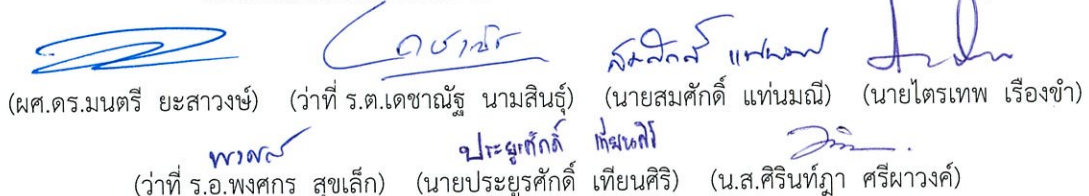 สมศักดิ์ แท่นมณี
(ผศ.ดร.มนตรี ยะสาวงษ์) (ว่าที่ ร.ต.เดชาณัฐ นามสินธุ์) (นายสมศักดิ์ แท่นมณี) (นายไตรเทพ เรืองขำ)
ประยูรศักดิ์ เทียนศิริ
(ว่าที่ ร.อ.พงศกร สุขเล็ก) (นายประยูรศักดิ์ เทียนศิริ) (น.ส.ศิรินท์ฎา ศรีผาวงค์)